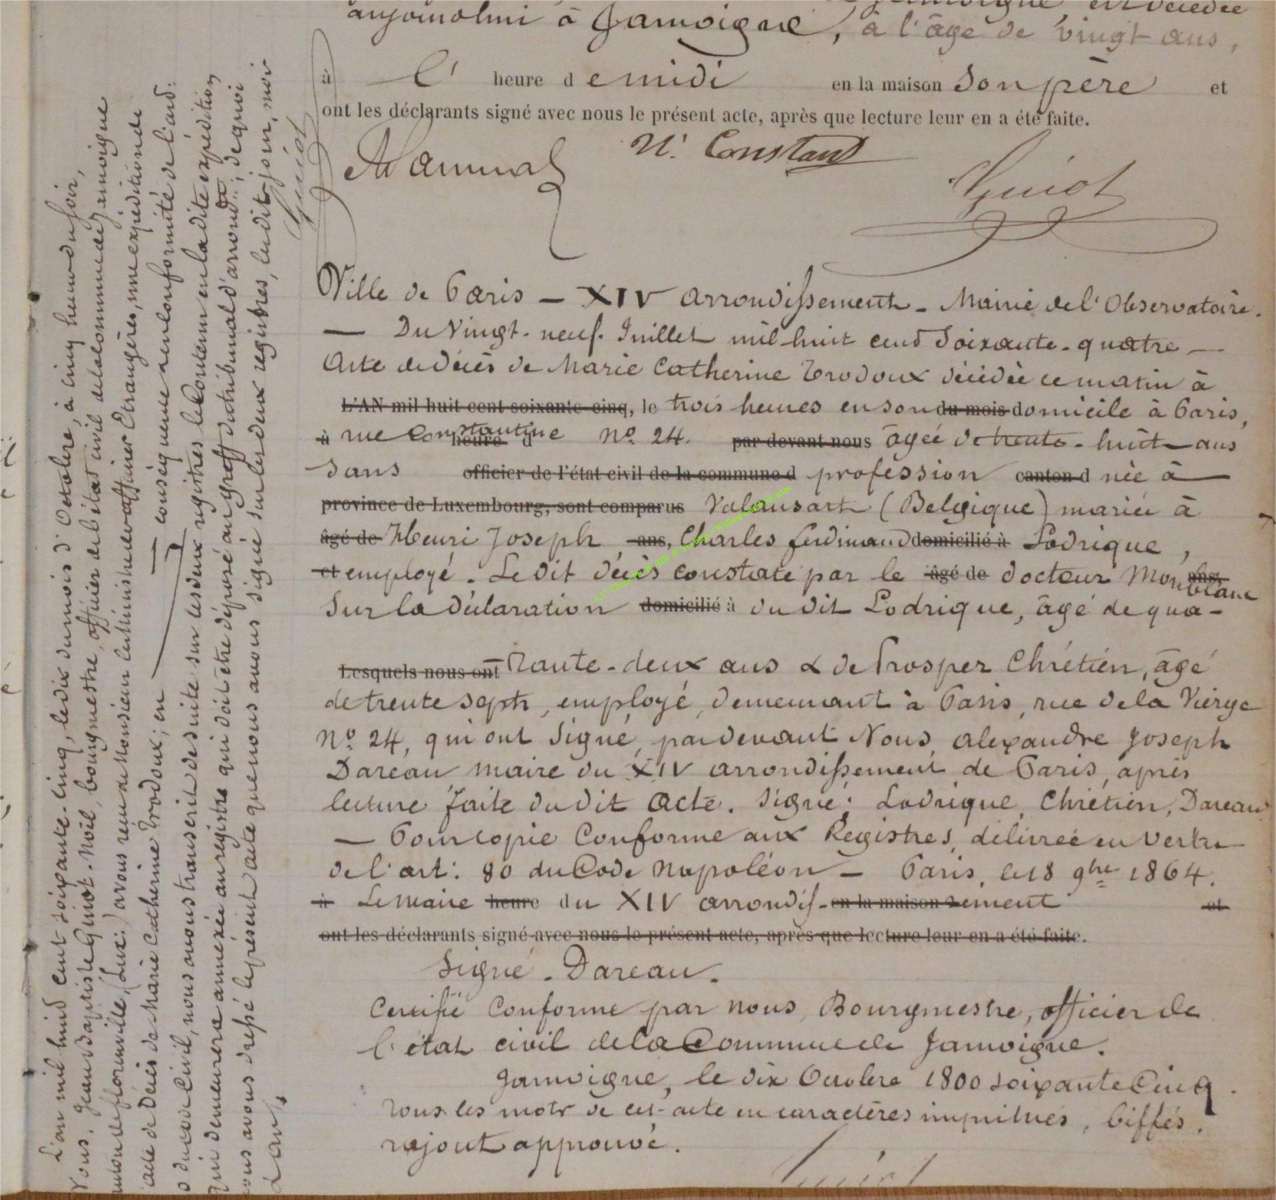 aujourdhui à Jamoigne, à l'âge de vingt ans,
à l' heure d emidi en la maison Son père et
ont les déclarants signé avec nous le présent acte, après que lecture leur en a été faite.
N. Constant Guiot
Ville de Paris – XIV arrondissement – Mairie de l'Observatoire.
— Du Vingt-neuf Juillet mil-huit cent Soixante-quatre —
Acte de décès de Marie Catherine Trodoux décédée ce matin à
L'AN mil huit cent soixante-cinq, le trois heures en son du mois domicile à Paris,
à rue Constantine heure d N° 24. par devant nous âgée de trente-huit ans
Sans officier de l'état civil de la commune d profession canton d née à —
province de Luxembourg, sont comparus Valansart (Belgique) mariée à
âgé de Henri Joseph ans, Charles ferdinand domicilié à Lodrique,
et employé. Le dit décès constaté par le âgé de docteur Monblanc
Sur la déclaration domicilié à du dit Lodrique, âgé de qua-
Lesquels nous ont rante-deux ans & de Prosper Chrétien, âgé
de trente sept, employé, demeurant à Paris, rue de la Vierge
N° 24, qui ont Signé, pardevant Nous, alexandre Joseph
Dareau maire du XIV arrondissement de Paris, après
lecture faite du dit acte. Signé: Lodrique, Chrétien, Dareau
— Pour copie Conforme aux Registres, délivrée en Vertu
de l'art: 80 du Code Napoléon — Paris, le 18 9bre 1864.
à Le maire heure du XIV arrondis- en la maison sement et
ont les déclarants signé avec nous le présent acte, après que lecture leur en a été faite.
Signé – Dareau.
Certifié Conforme par nous, Bourgmestre, officier de
l'état civil de la Commune de Jamoigne.
Jamoigne, le dix Octobre 1800 soixante Cinq.
Tous les mots de cet acte en caractères imprimés, biffés,
rajout approuvé.
Guiot
L'an mil huit cent soixante-cinq, le dix du mois d'Octobre, à cinq heures du soir,
Nous, Jean Baptiste Guiot-Noël, bourgmestre, officier de l'état civil de la commune de Jamoigne
canton de florenville, (Lux:) avons reçu de Monsieur le Ministre des affaires Etrangères, une expédition de
l'acte de Décès de Marie Catherine Trodoux; en — conséquence et en conformité de l'art:
du code Civil, nous avons transcrit de suite sur les deux registres le Contenu en la dite expédition
qui demeurera annexée au registre qui doit être déposé au greffe du tribunal d'arrond.t, de quoi
nous avons dressé le présent acte que nous avons signé sur les deux registres, les dits jour, mois
& an.
Guiot